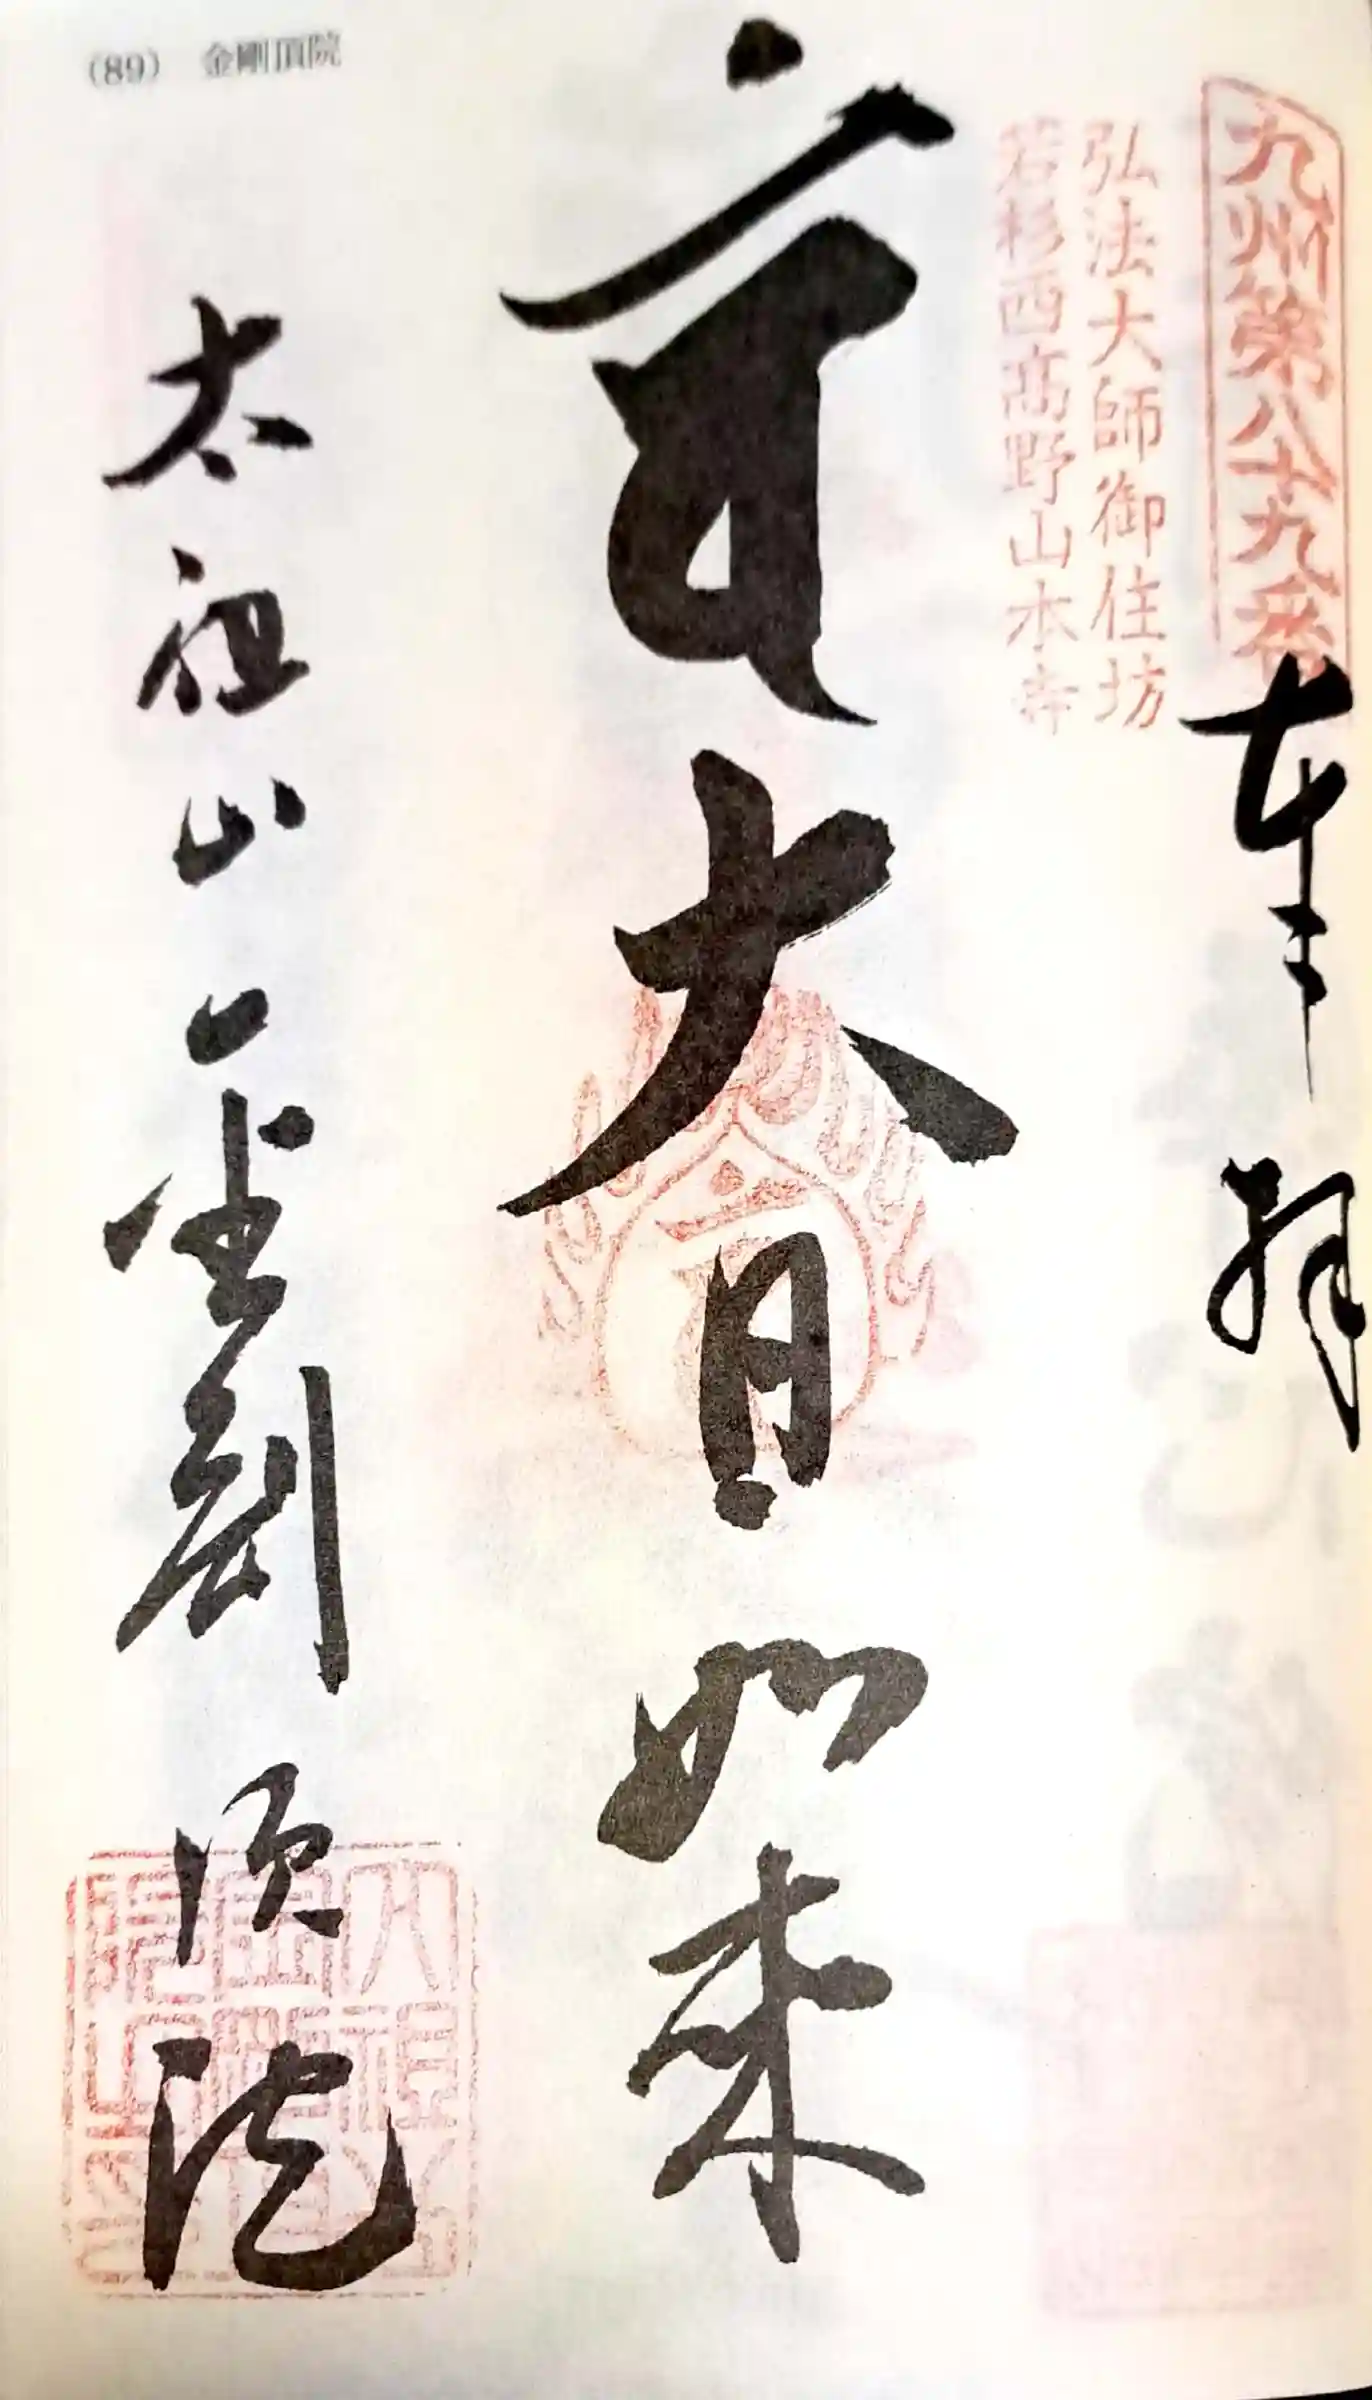 (89) 金剛頂院
九州第八十九番
奉拝
弘法大師御住坊
若杉西高野山本寺
大日如来
太祖山 金剛頂院